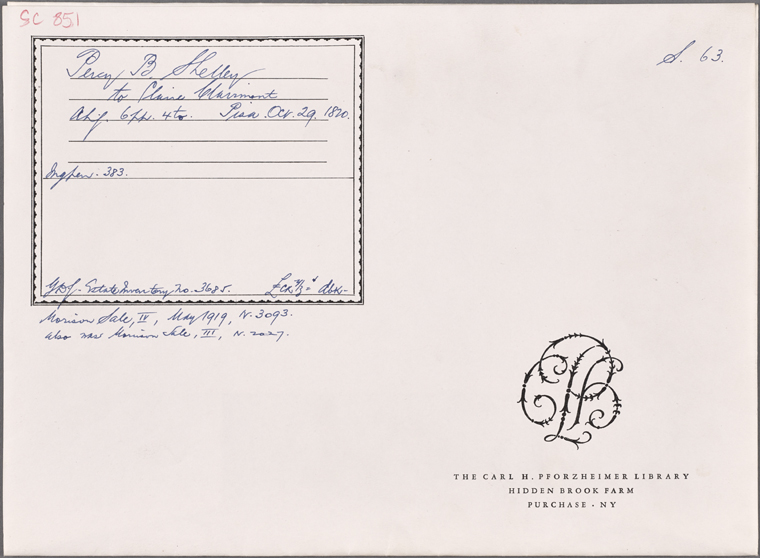 SC 851
S. 63.
Percy B Shelley
to Claire Clairmont
6pp. 4to. Pisa. Oct. 29, 1820.
Ingpen. 383.
Estate Inventory No. 3685.
Morison Sale, IV, May 1919, N. 3093.
also was Morrison Sale, III, N. 2027.
THE CARL H. PFORZHEIMER LIBRARY
HIDDEN BROOK FARM
PURCHASE · NY